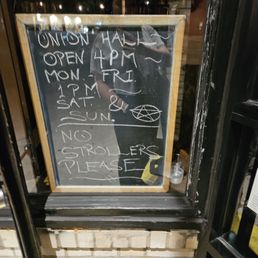 UNION HALL~
OPEN 4PM~
MON.-FRI
1PM
SAT. &
SUN.
NO
STROLLERS
PLEASE